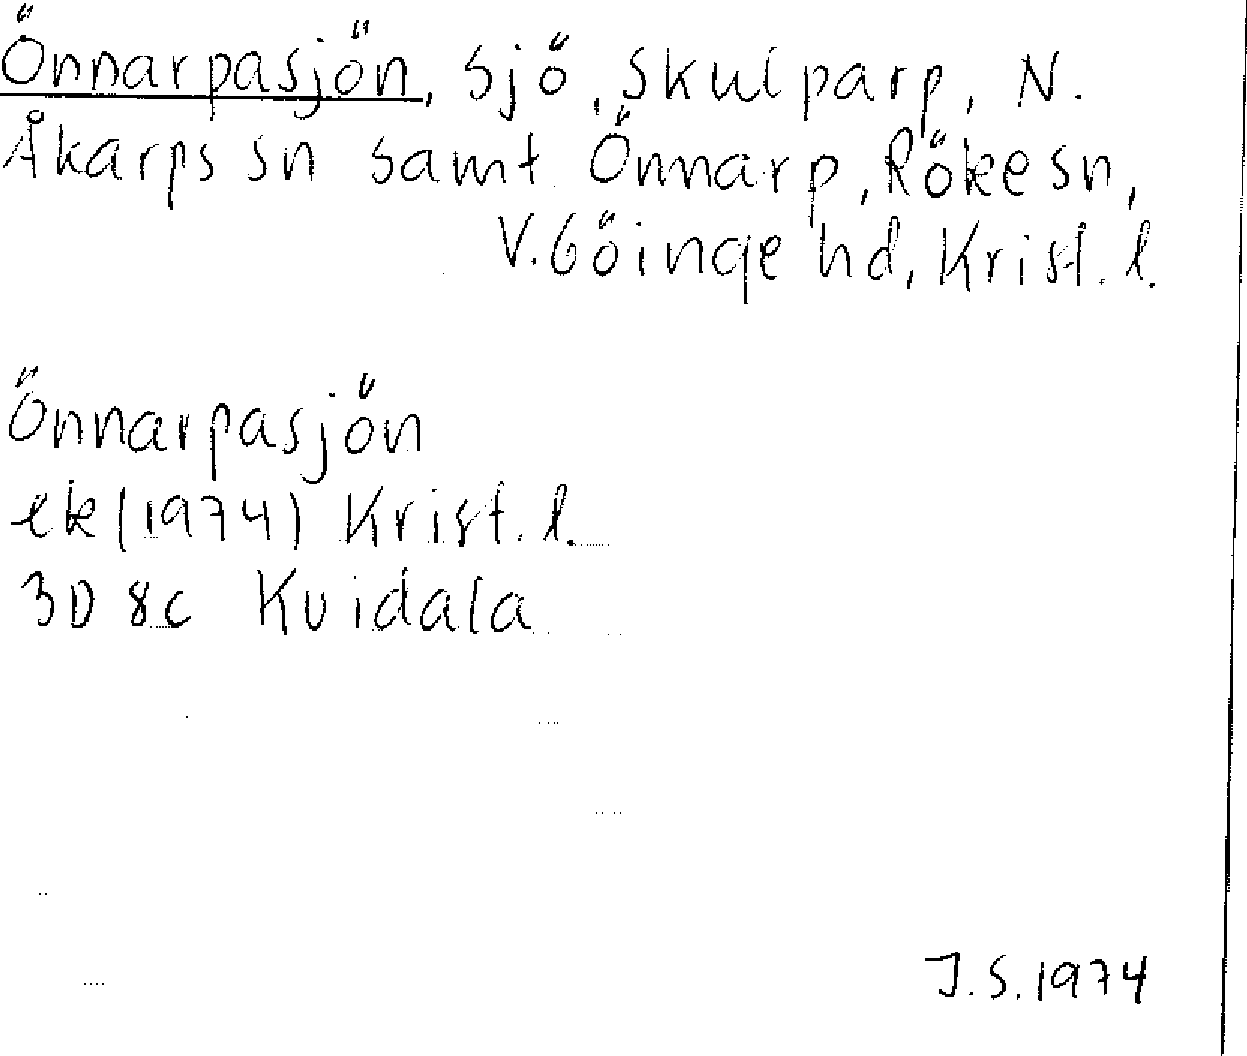 Önnarpasjön, sjö, Skulparp, N.
Åkarps sn samt Önnarp, Röke sn,
V. Göinge hd, Krist. l.
Önnarpasjön
ek (1974) Krist. l.
3D 8c Kvidala
J.S. 1974